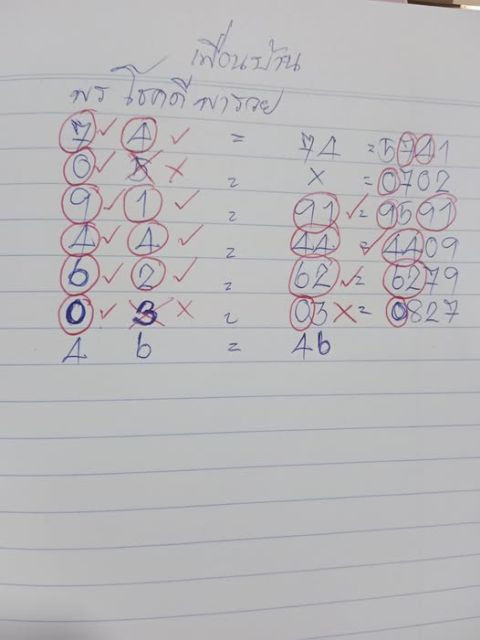 เพื่อนบ้าน
พร โชคดี พารวย
7 ✓ 4 ✓ = 74 = 5741
0 ✓ 5 × = × = 0702
9 ✓ 1 ✓ = 91 ✓ = 9591
4 ✓ 4 ✓ = 44 ✓ 4409
6 ✓ 2 ✓ = 62 ✓ = 6279
0 ✓ 3 × = 03 × = 0827
4 6 = 46